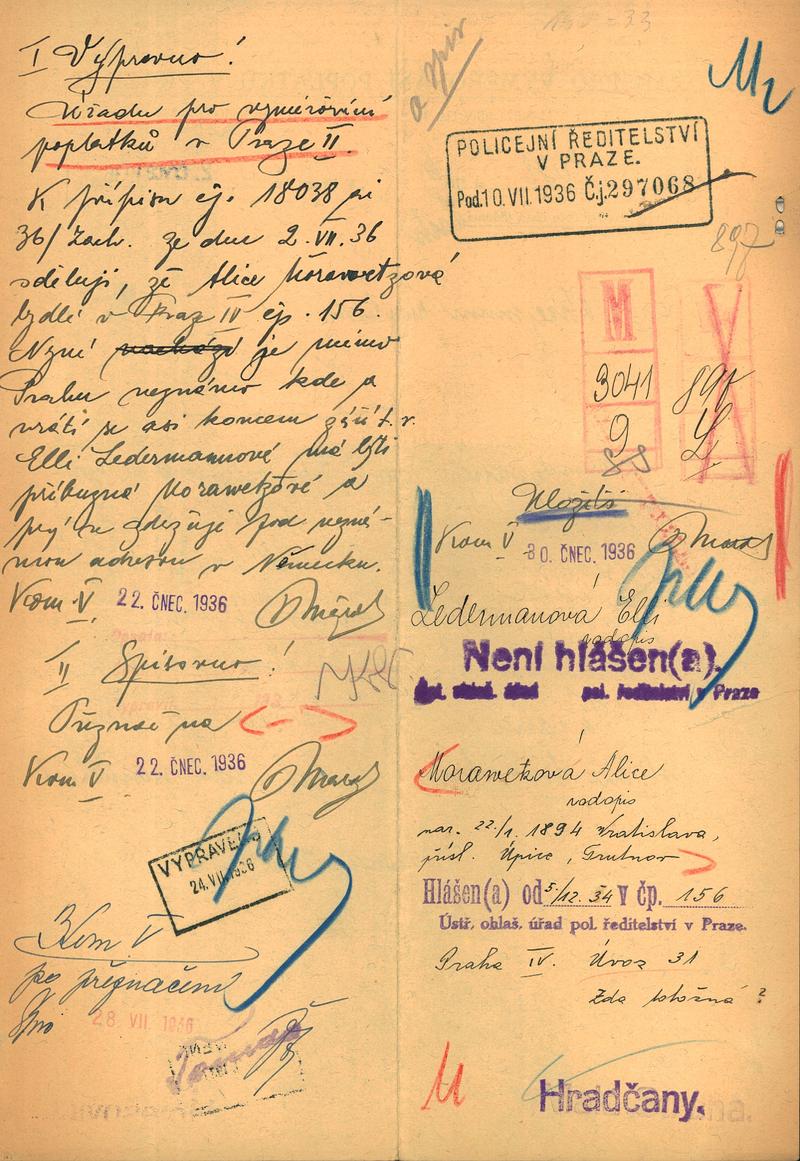 I Vypravno!
Úřadu pro vyměřování
poplatků v Praze II.
K přípisu čj. 18038 ai
36/Zach. ze dne 2.VII.36
sděluji, že Alice Morawetzová
bydlí v Praz IV čp. 156.
Nyní je mimo
Prahu neznámo kde a
vrátí se asi koncem září t.r.
Elli Ledermannové má býti
příbuzná Morawetzové a
prý se zdržuje pod nezná-
mou adresou v Německu.
Kom. V. 22. ČNEC. 1936
II Spisovno!
Přeznač na
Kom V 22. ČNEC. 1936
VYPRAVENO
24. VII. 1936
Kom V
po přeznačení
28 VII 1936
a spis
POLICEJNÍ ŘEDITELSTVÍ
V PRAZE.
Pod. 10. VII. 1936 Č.j. 297068
897
M
3041 897
9 L
Uložiti
Kom V 30. ČNEC. 1936
Ledermanová Elli
vadopis
Není hlášen(a).
Úst. ohlaš. úřad pol. ředitelství v Praze
Morawetková Alice
vadopis
nar. 22/1. 1894 Vratislava,
přísl. Úpice, Trutnov
Hlášen(a) od 5/12. 34 v čp. 156
Ústř. ohlaš. úřad pol. ředitelství v Praze.
Praha IV. Úvoz 31
Zda totožná?
M
Hradčany.